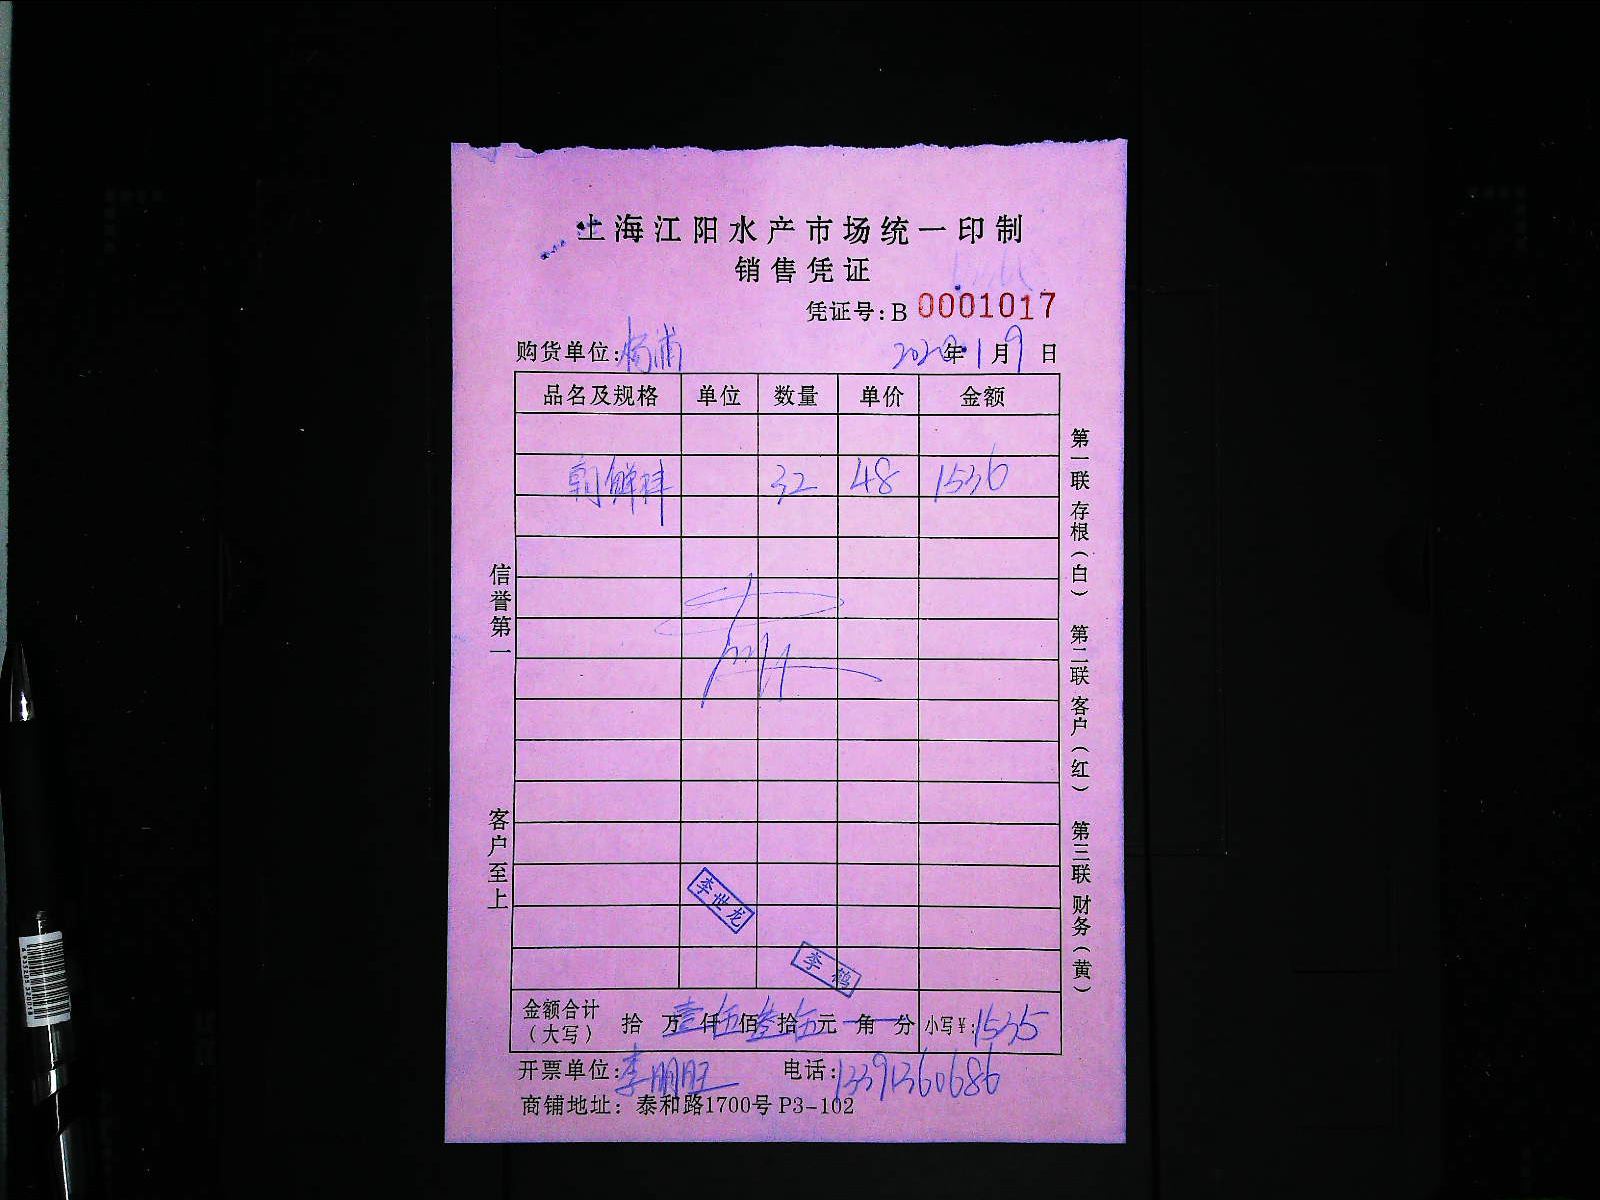 上海江阳水产市场统一印制
销售凭证
凭证号：B 0001017
购货单位：杨浦 2020年1月9日
品名及规格 单位 数量 单价 金额
朝鲜 32 48 1536
李世龙
李鸽
金额合计（大写） 拾 万壹仟伍佰叁拾伍元 角 分 小写￥：1535
开票单位：李朋旺 电话：13391360686
商铺地址：泰和路1700号 P3-102
信誉第一 客户至上
第一联 存根（白） 第二联 客户（红） 第三联 财务（黄）